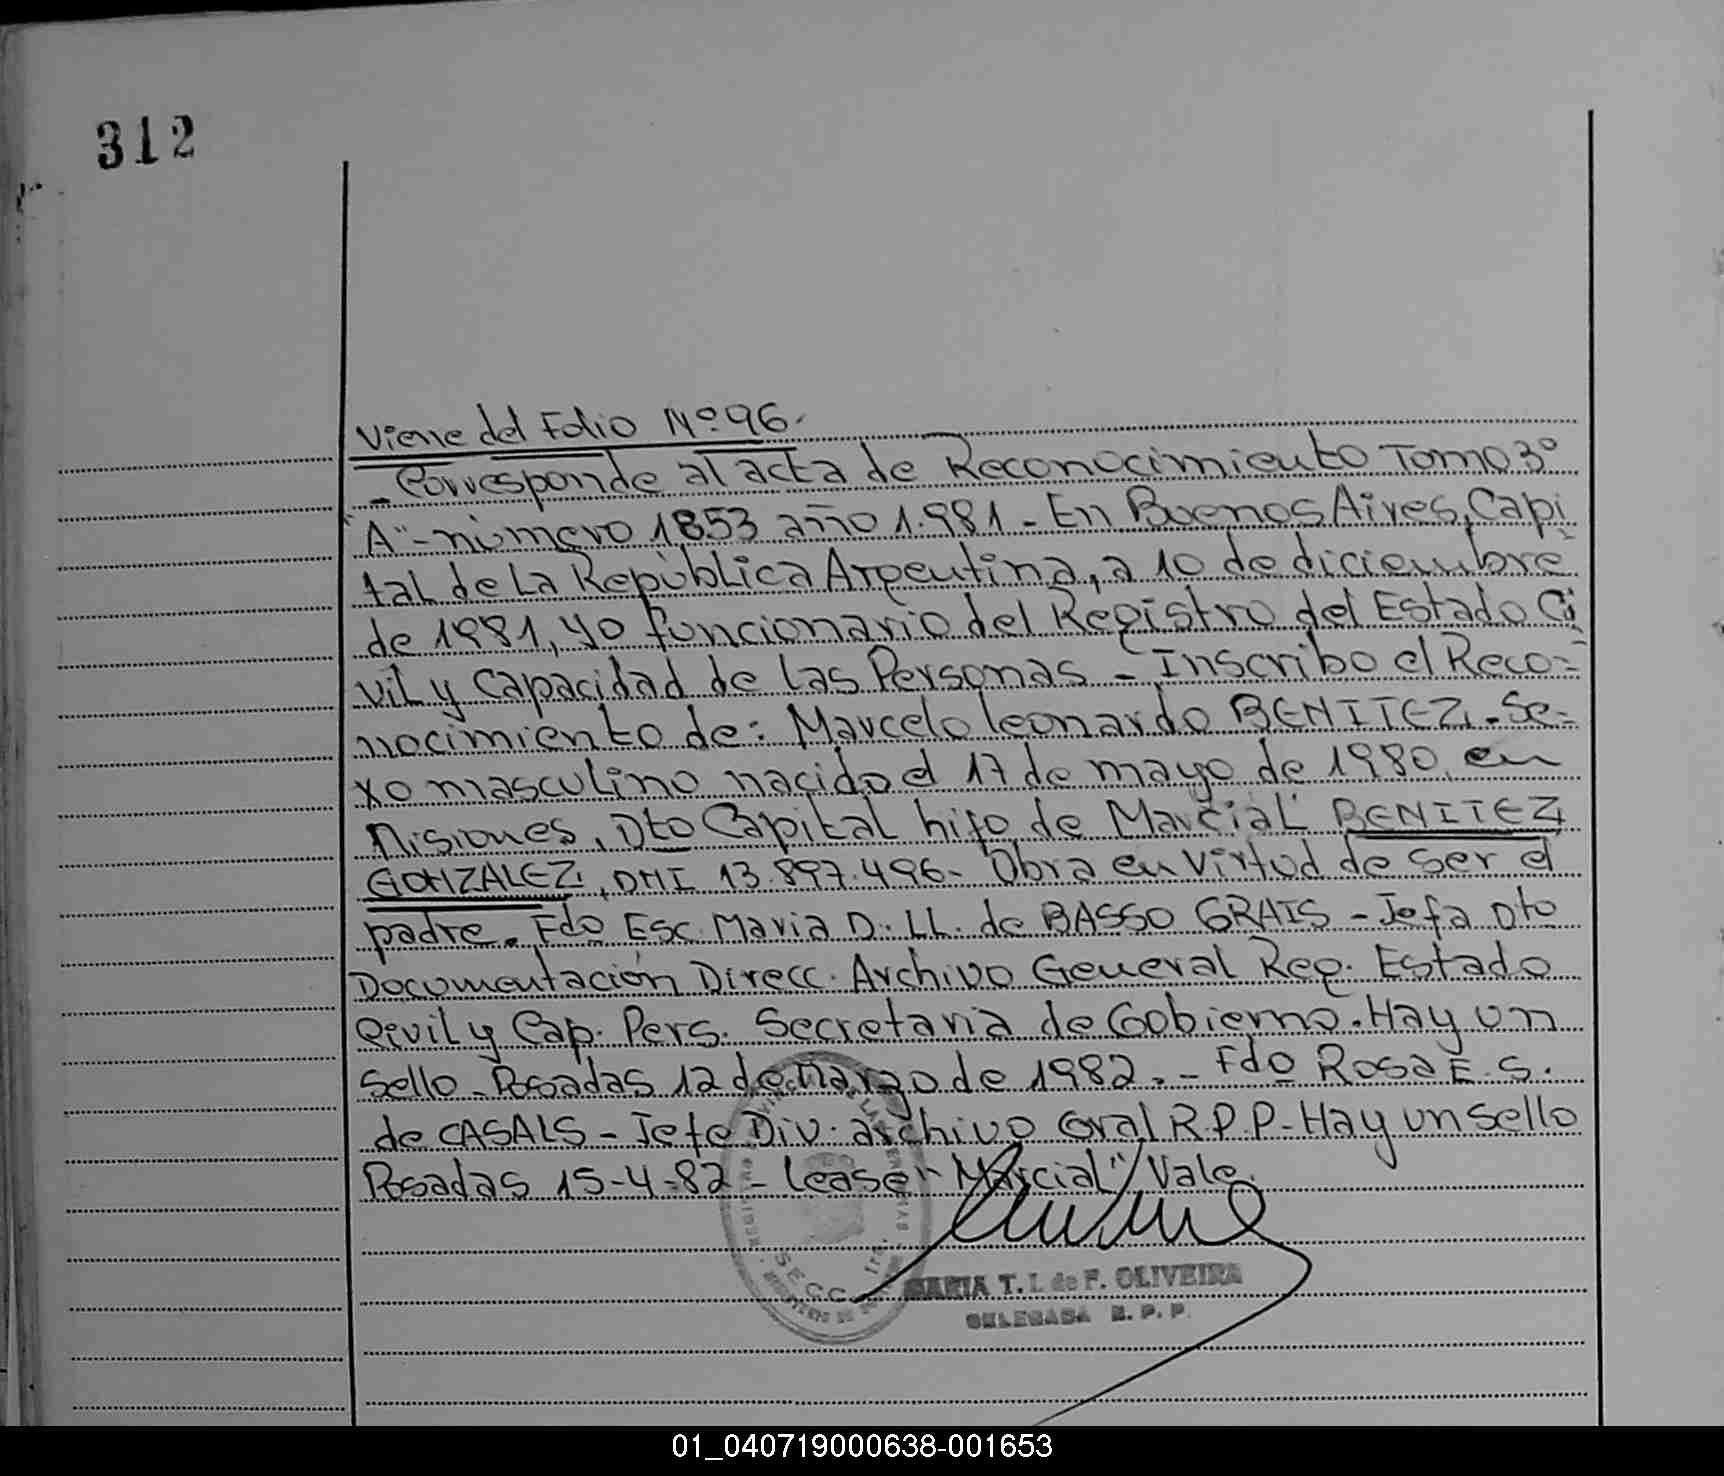 312
Viene del Folio Nº 96.
- Corresponde al acta de Reconocimiento Tomo 3º
"A"- número 1853 año 1.981 - En Buenos Aires, Capi
tal de La República Argentina, a 10 de diciembre
de 1981, yo funcionario del Registro del Estado Ci
vil y Capacidad de las Personas - Inscribo el Reco-
nocimiento de: Marcelo Leonardo BENITEZ. - Se-
xo masculino nacido el 17 de mayo de 1980, en
Misiones, Dto Capital hijo de Marcial BENITEZ
GONZALEZ, DNI 13.897.496 - Obra en virtud de ser el
padre. Fdo Esc. Maria D. LL. de BASSO GRAIS - Jefa Dto
Documentación Direcc. Archivo General Reg. Estado
Civil y Cap. Pers. Secretaria de Gobierno. Hay un
sello - Posadas 12 de Marzo de 1982. - Fdo Rosa E. S.
de CASALS - Jefe Div. archivo Gral R.P.P - Hay un sello
Posadas 15-4-82 - Lease "Marcial" / Vale.
MARIA T. I. de F. OLIVEIRA
DELEGADA R. P. P.
S E C C. 1ra.
01_040719000638-001653